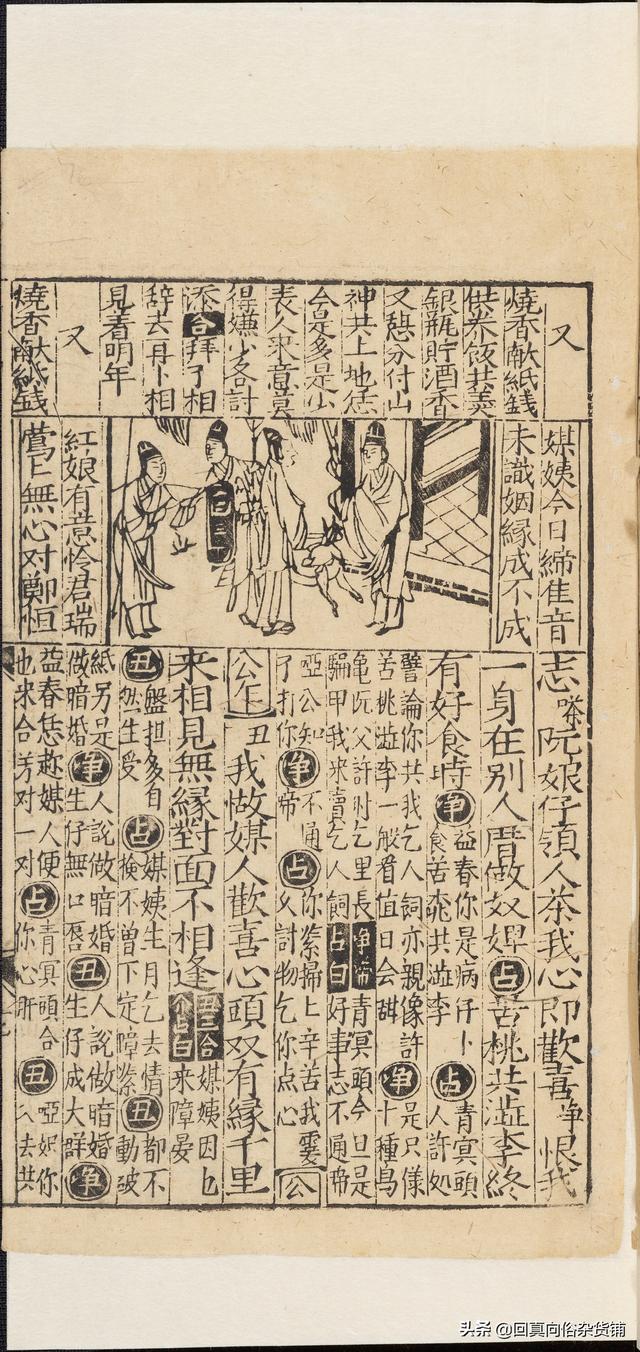 又
燒香献紙錢
供养飯共羙
銀瓶貯酒香
又憩分付山
神共土地恁
今是多是少
表人来意莫
得嫌少各討
添合拜了相
辞去再卜相
見着明年
又
燒香献紙錢
媒姨今日締佳音
未識姻緣成不成
紅娘有意怜君瑞
鶯上無心对鄭恒
志嗏阮娘仔領人茶我心即歡喜净恨我
一身在别人厝做奴婢占苦桃共澁李終
有好食時净益春你是病仔卜
食苦桃共澁李占青冥頭
人許処
譬論你共我乞人飼亦親像許
苦桃澁李一般看值日会甜净是只様
十種鳥
龟阮父許时乞里長净
騙甲我来賣乞人飼占白青冥頭今旦是
好事志不通啼
啞公知
了打你净不通
啼占你㴞掃上辛苦我
久討物乞你点心公
公上丑我做媒人歡喜心頭双有緣千里
来相見無緣對面不相逢丑
占白媒姨因乜
来障晏
丑盤担多自
然生受占媒姨生月乞去情
検不曾下定障㴞丑都不
動破
紙另是净人說做暗婚丑人說做暗婚
做暗婚生仔無口唇生仔成大群净
益春恁趂媒人便占青冥頭合丑啞娘你
也来合芳对一对你心肝入去共
头条 @回真向俗杂货铺